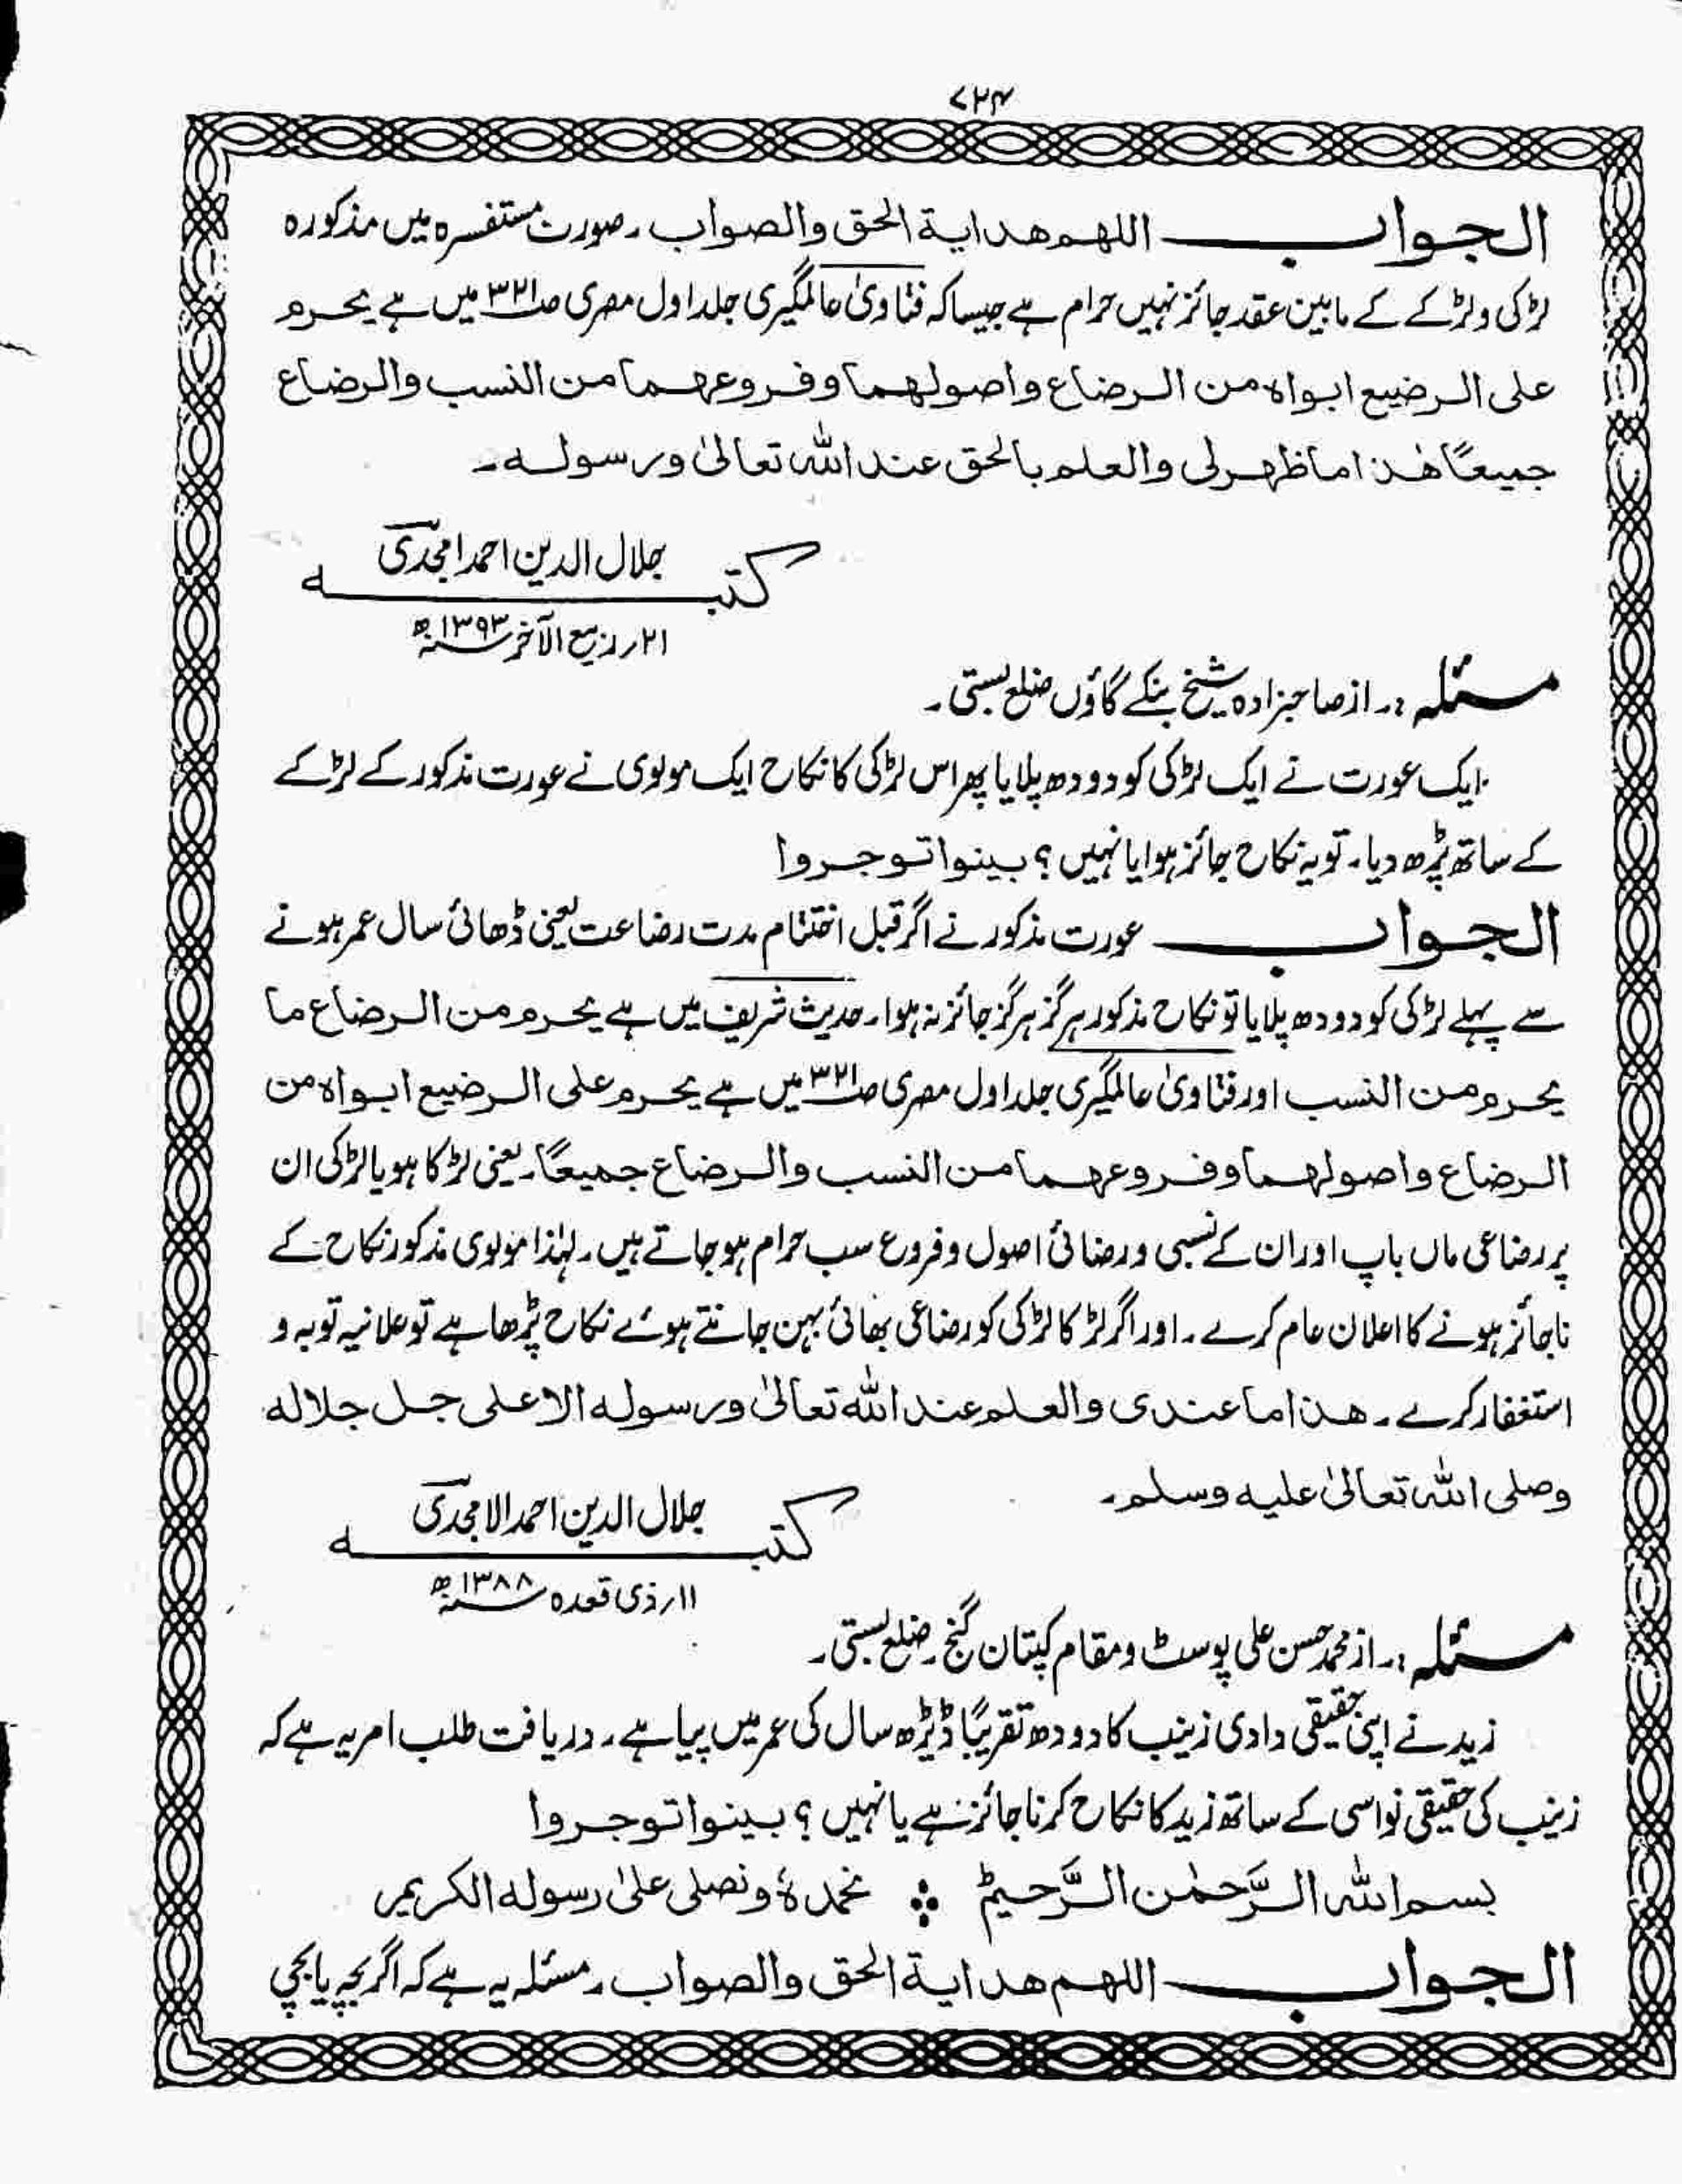 ۷۲۴
الجواب ـــــــ اللھم ھدایۃ الحق والصواب ۔ صورت مستفسرہ میں مذکورہ
لڑکی و لڑکے کے مابین عقد جائز نہیں حرام ہے جیسا کہ فتاویٰ عالمگیری جلد اول مصری صـ۳۲۱ میں ہے یحرم
علی الرضیع ابواہ من الرضاع واصولھما وفروعھما من النسب والرضاع
جمیعًا ھٰذا ما ظھر لی والعلم بالحق عند اللہ تعالیٰ ورسولہ۔
جلال الدین احمد امجدی
کتبہ
۲۱؍ ربیع الآخر سنہ ۱۳۹۳ھ
مسئلہ :۔ از صاحبزادہ شیخ بنکے گاؤں ضلع بستی۔
ایک عورت نے ایک لڑکی کو دودھ پلایا پھر اس لڑکی کا نکاح ایک مولوی نے عورت مذکور کے لڑکے
کے ساتھ پڑھ دیا۔ تو یہ نکاح جائز ہوا یا نہیں ؟ بینوا توجروا
الجواب ـــــــ عورت مذکور نے اگر قبل اختتام مدت رضاعت یعنی ڈھائی سال عمر ہونے
سے پہلے لڑکی کو دودھ پلایا تو نکاح مذکور ہرگز ہرگز جائز نہ ہوا۔ حدیث شریف میں ہے یحرم من الرضاع ما
یحرم من النسب اور فتاویٰ عالمگیری جلد اول مصری صـ۳۲۱ میں ہے یحرم علی الرضیع ابواہ من
الرضاع واصولھما وفروعھما من النسب والرضاع جمیعًا۔ یعنی لڑکا ہو یا لڑکی ان
پر رضاعی ماں باپ اور ان کے نسبی و رضائی اصول و فروع سب حرام ہو جاتے ہیں۔ لہٰذا مولوی مذکور نکاح کے
ناجائز ہونے کا اعلان عام کرے۔ اور اگر لڑکا لڑکی کو رضاعی بھائی بہن جانتے ہوئے نکاح پڑھا ہے تو علانیہ توبہ و
استغفار کرے۔ ھذا ما عندی والعلم عند اللہ تعالیٰ ورسولہ الاعلی جل جلالہ
وصلی اللہ تعالیٰ علیہ وسلم۔
جلال الدین احمد الامجدی
کتبہ
۱۱؍ ذی قعدہ سنہ ۱۳۸۸ھ
مسئلہ :۔ از محمد حسن علی پوسٹ و مقام کپتان گنج۔ ضلع بستی۔
زید نے اپنی حقیقی دادی زینب کا دودھ تقریبًا ڈیڑھ سال کی عمر میں پیا ہے۔ دریافت طلب امر یہ ہے کہ
زینب کی حقیقی نواسی کے ساتھ زید کا نکاح کرنا جائز ہے یا نہیں ؟ بینوا توجروا
بسم اللہ الرَّحمٰن الرَّحیم ؞ نحمدہٗ ونصلی علیٰ رسولہ الکریم
الجواب ـــــــ اللھم ھدایۃ الحق والصواب۔ مسئلہ یہ ہے کہ اگر بچہ یا بچی